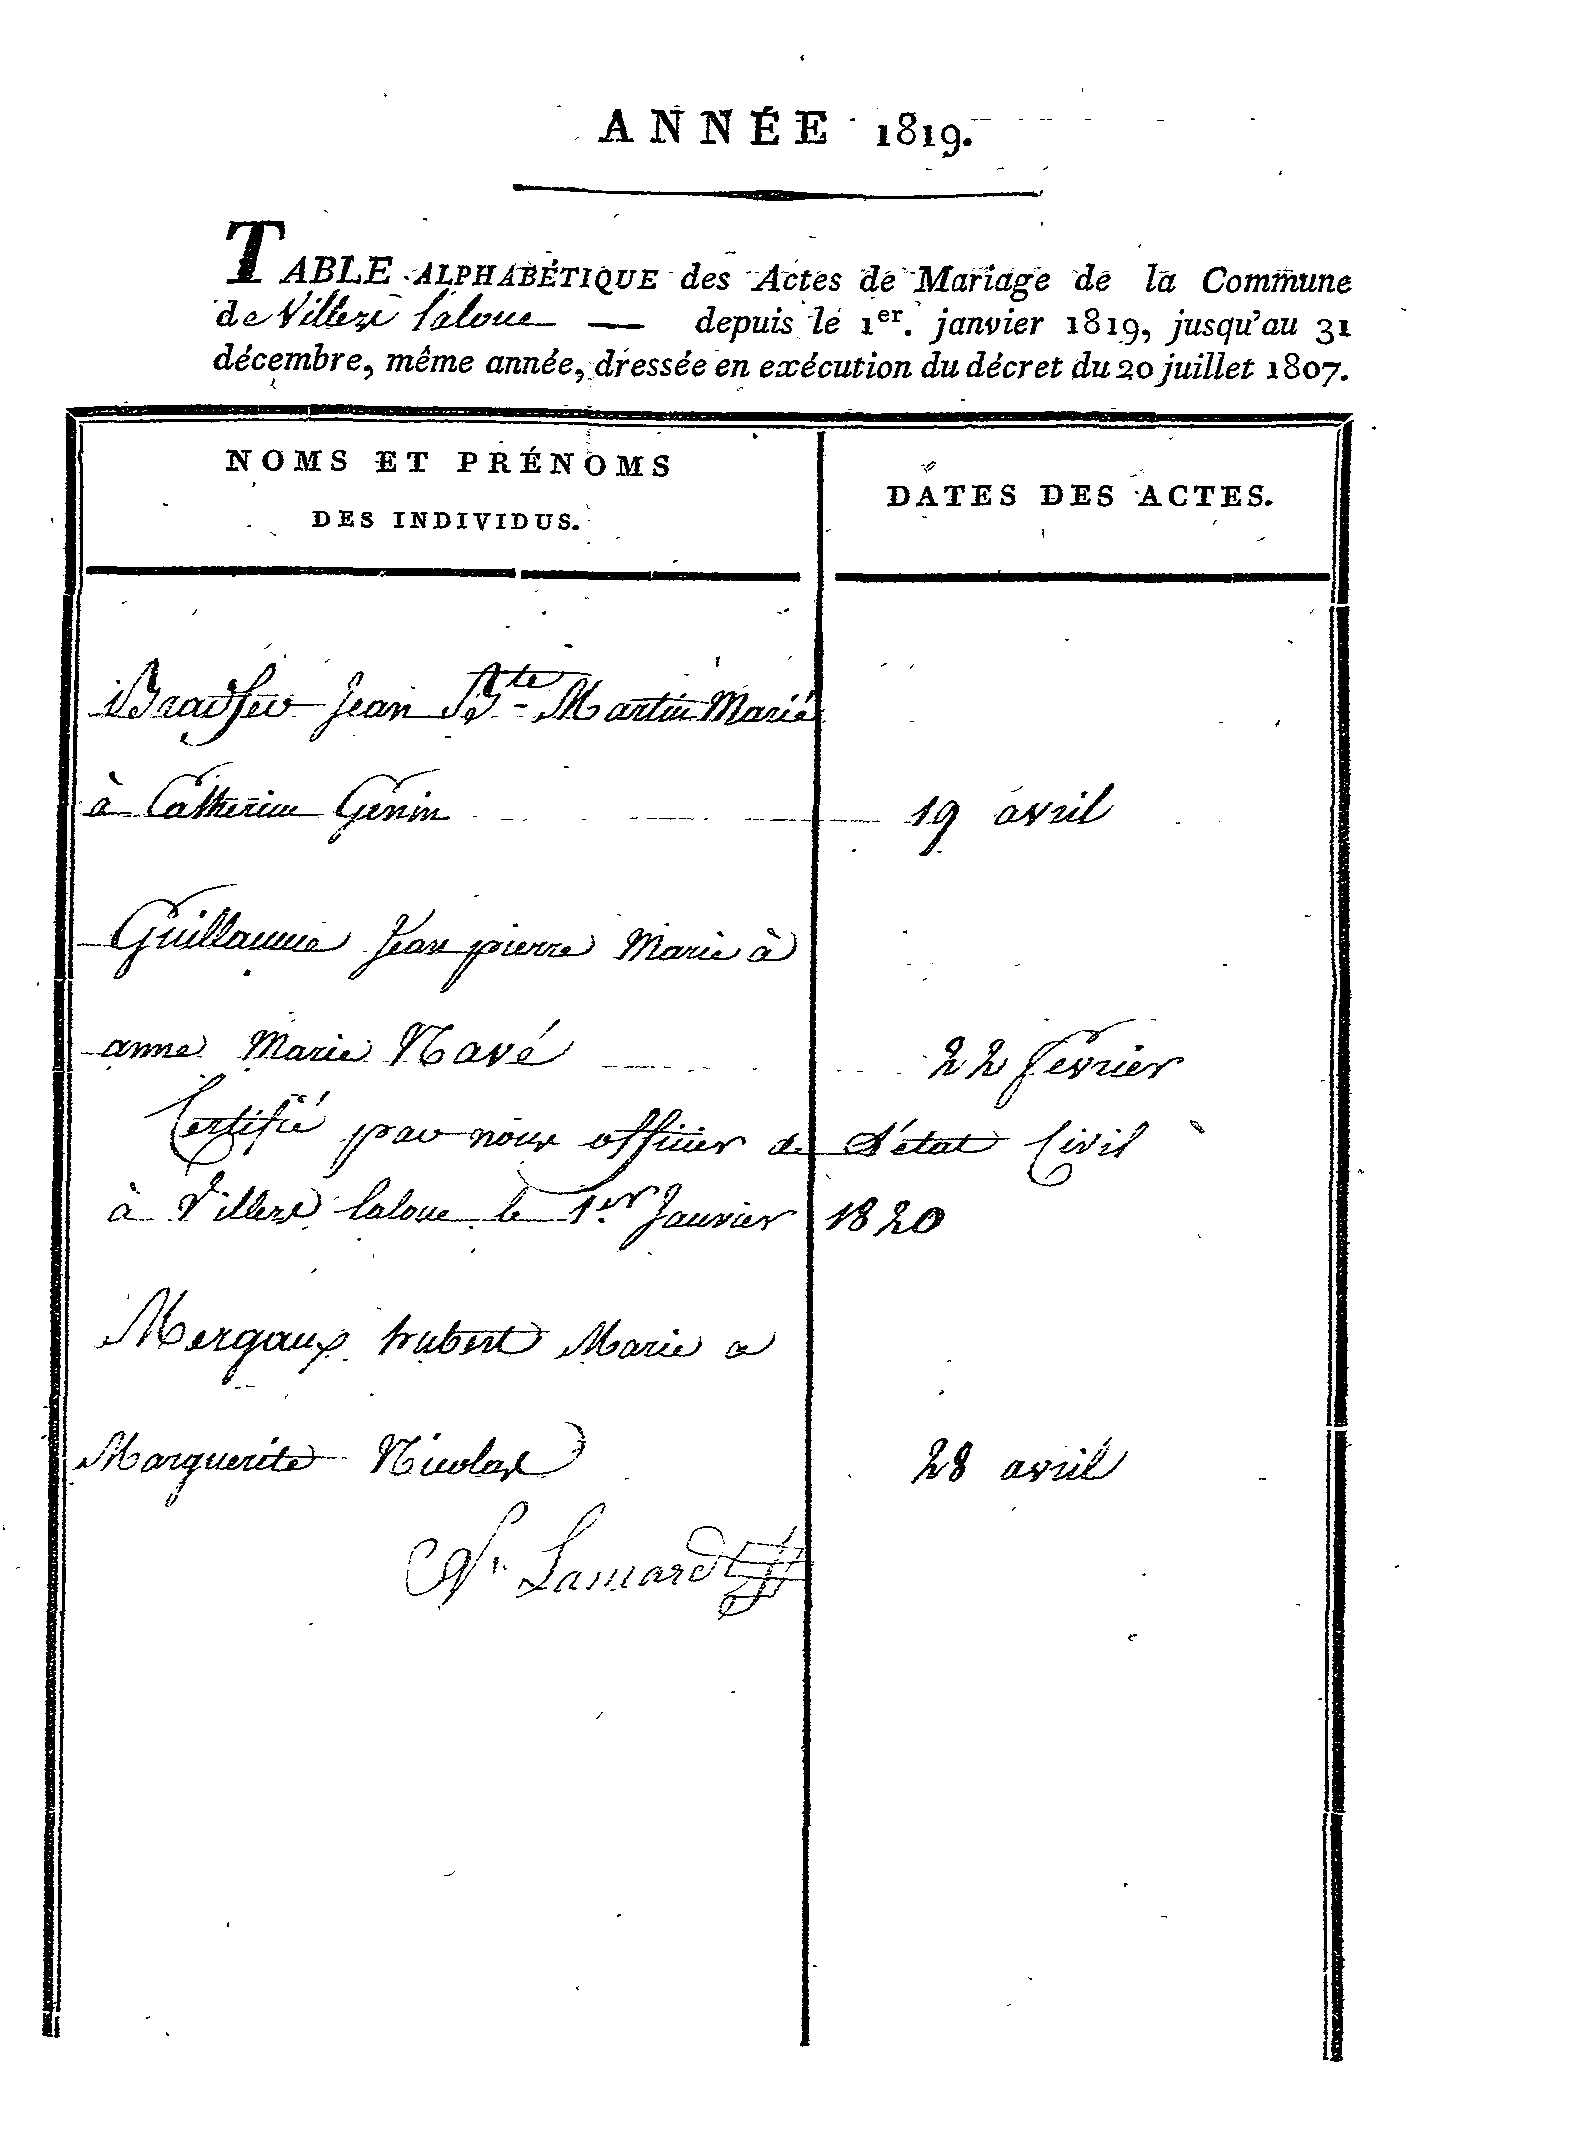 ANNÉE 1819.
TABLE ALPHABÉTIQUE des Actes de Mariage de la Commune
de Villers laloue — depuis le 1er. janvier 1819, jusqu'au 31
décembre, même année, dressée en exécution du décret du 20 juillet 1807.
NOMS ET PRÉNOMS
DES INDIVIDUS.
DATES DES ACTES.
Jean Bte Martin Marié
à Catherine Genin 19 avril
Guillaume Jean pierre Marie à
anne Marie Navé 22 fevrier
Certifié par nous officier de l'état Civil
à Villers laloue le 1er Janvier 1820
Mergaux hubert Marie a
Marguerite Nicolas 28 avril
Lamard